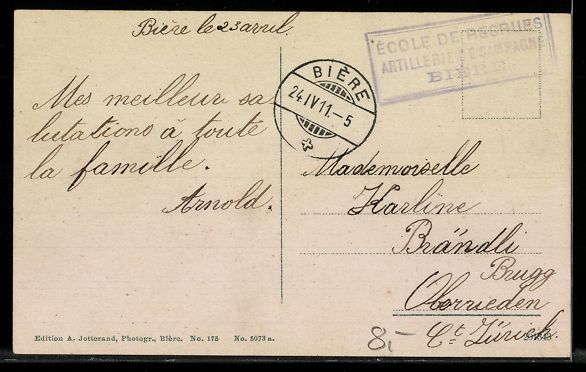 Bière le 23 avril.
ÉCOLE DE RECRUES
ARTILLERIE DE CAMPAGNE
BIÈRE
BIÈRE
24.IV.11.-5
Mes meilleur sa
lutations à toute
la famille.
Arnold.
Mademoiselle
Karline
Brändli
Brugg
Oberrieden
Ct. Zürich.
8,-
Edition A. Jotterand, Photogr., Bière. No. 175 No. 5073 a.